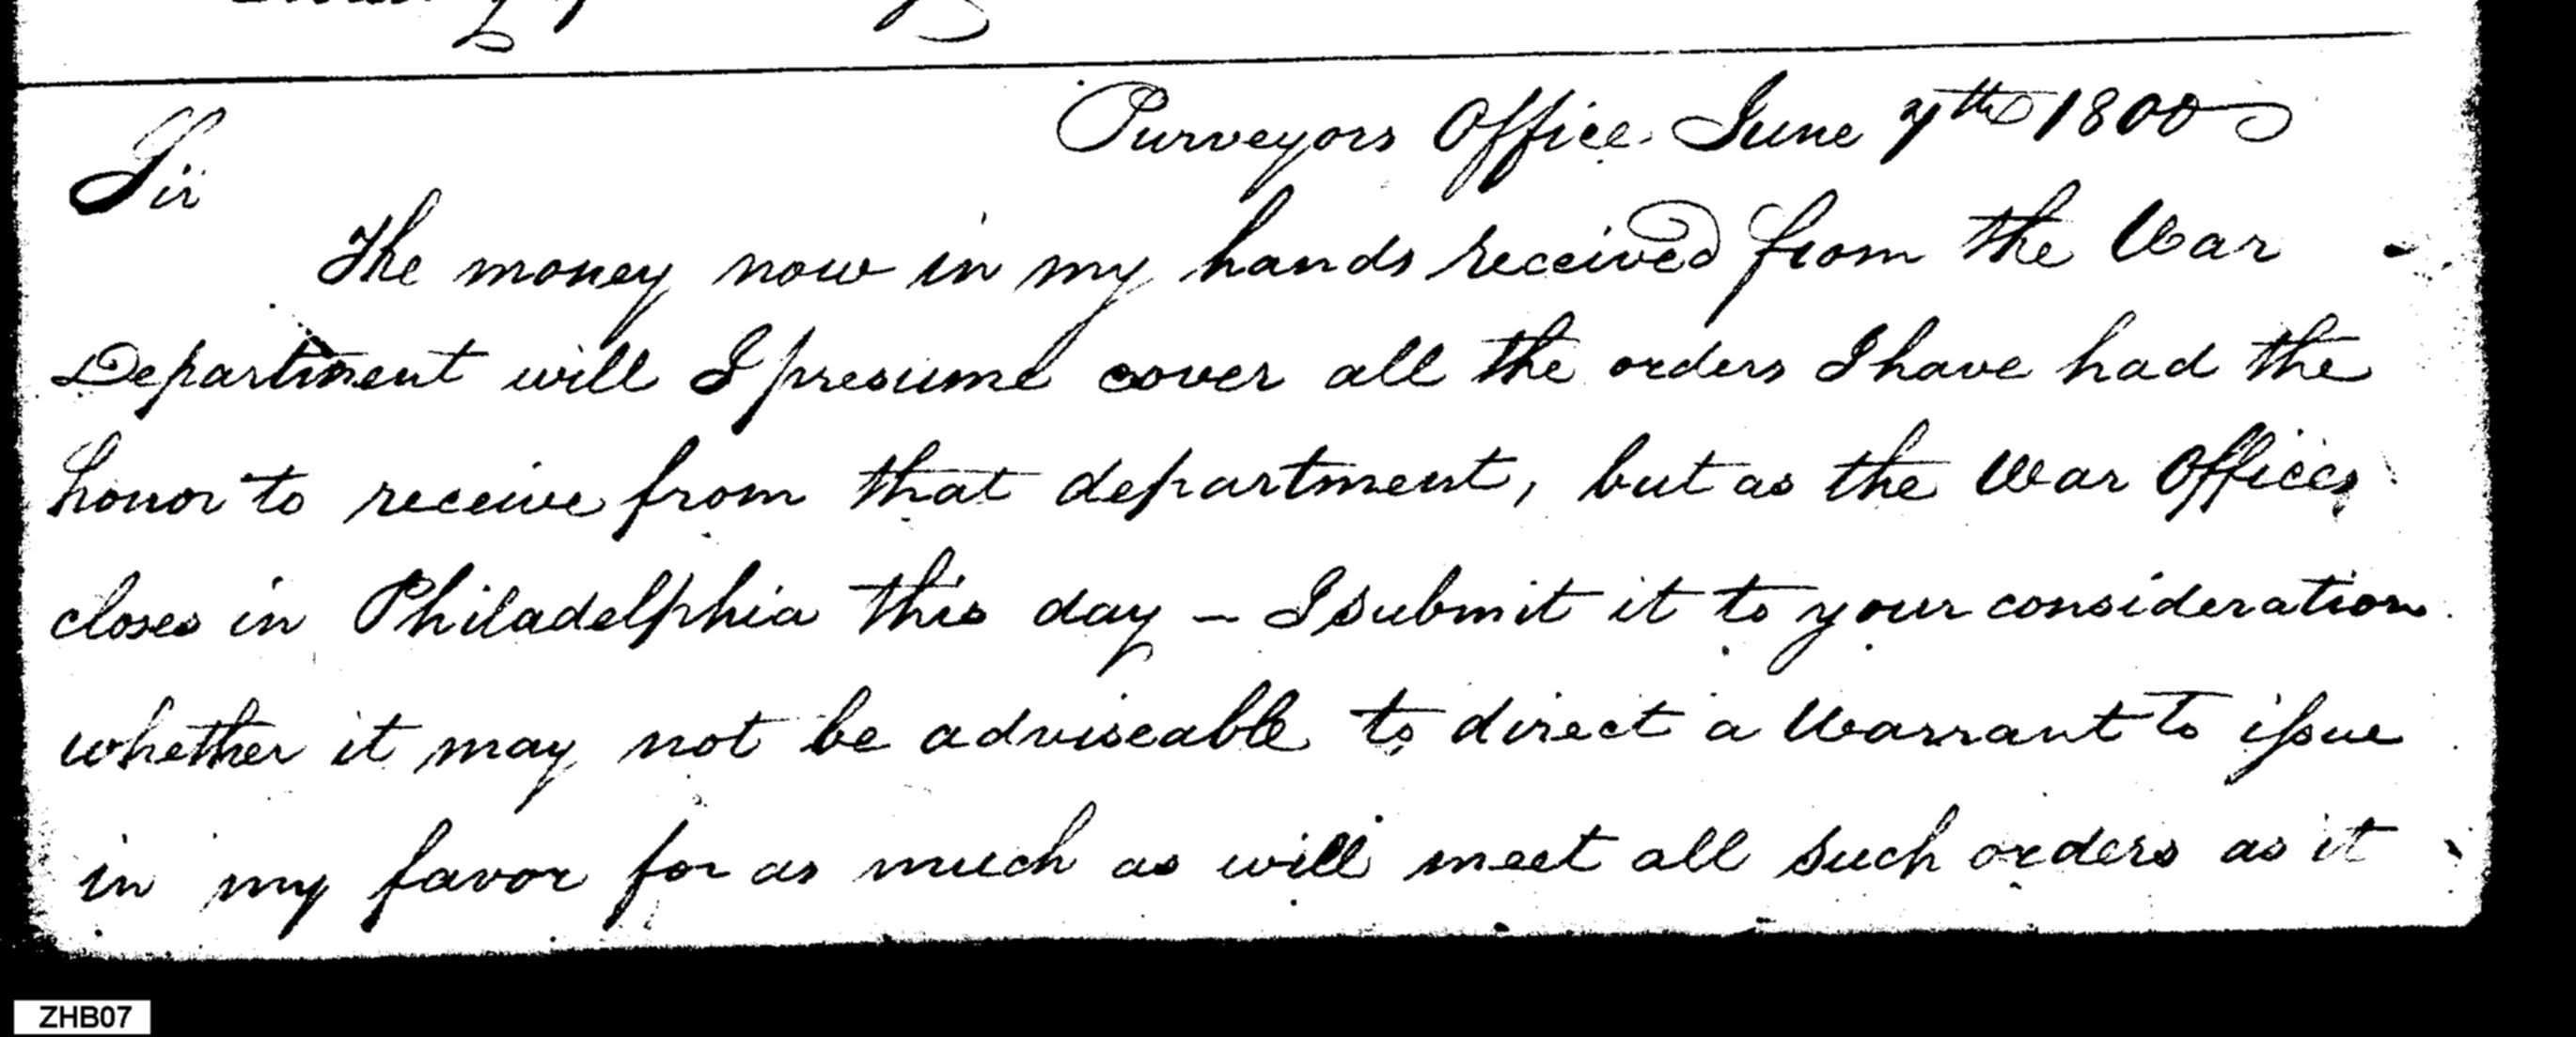 Purveyors Office June 7th 1800
Sir
The money now in my hands received from the War
Department will I presume cover all the orders I have had the
honor to receive from that department, but as the War Office
closes in Philadelphia this day – I submit it to your consideration
whether it may not be adviseable to direct a Warrant to issue
in my favor for as much as will meet all such orders as it
ZHB07